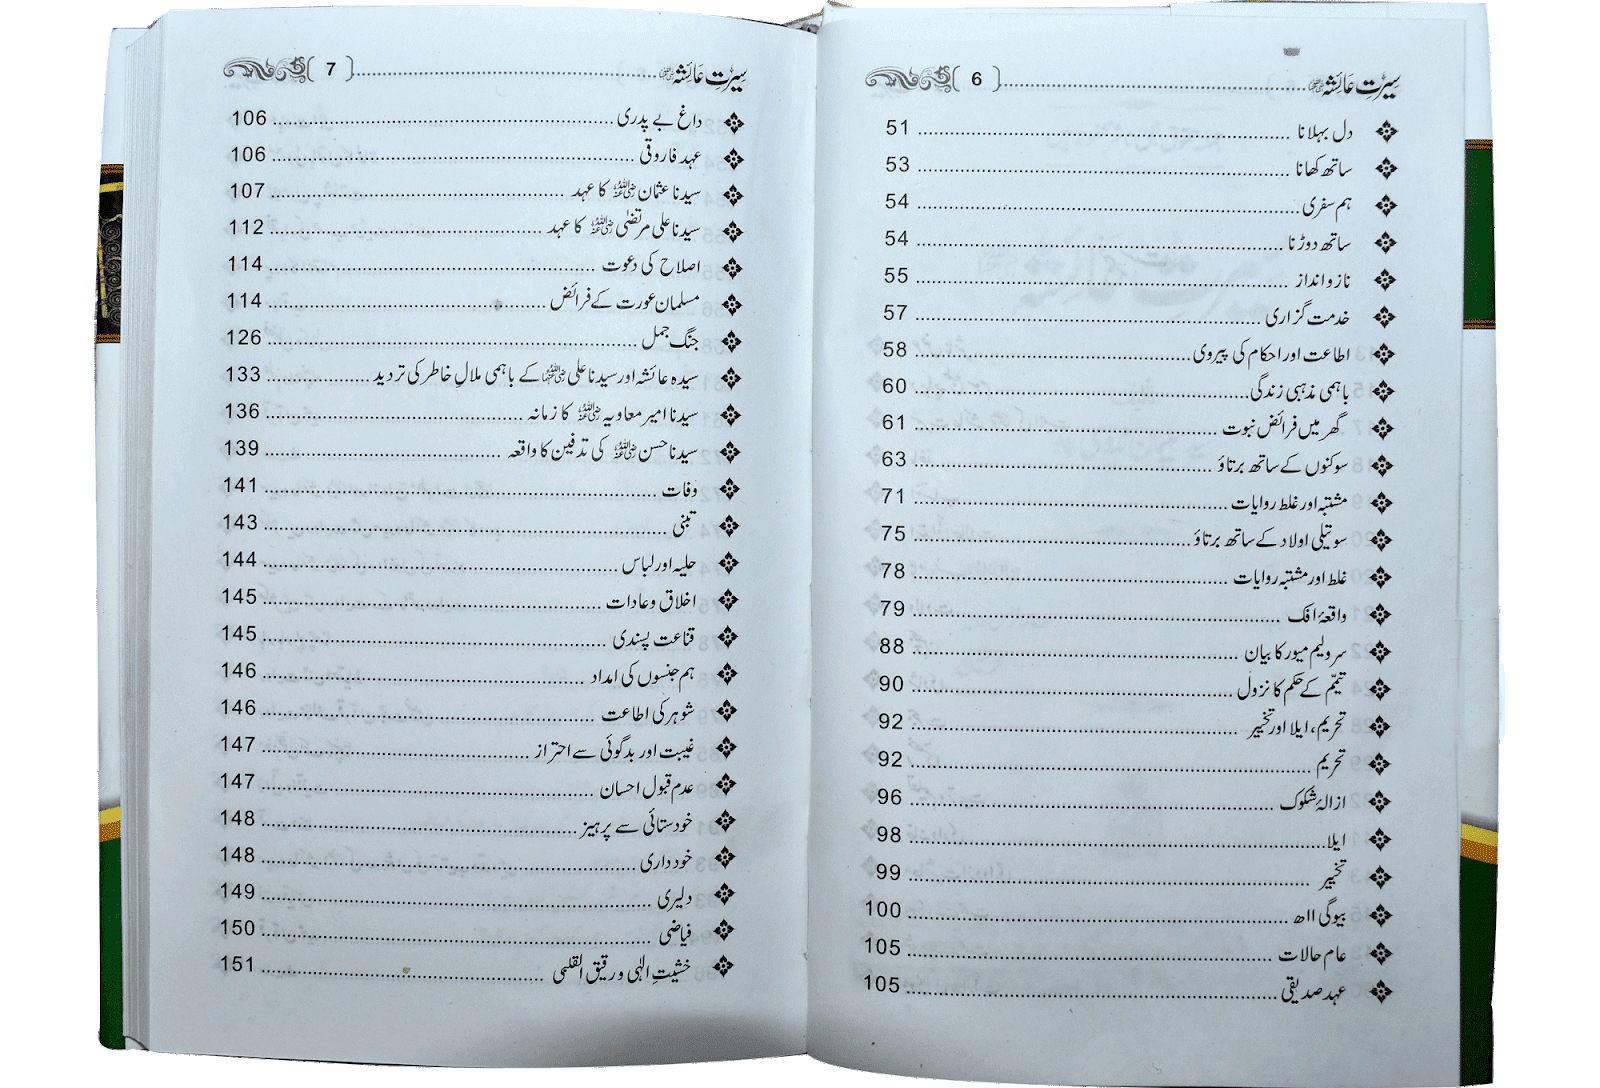 سیرتِ عائشہ رضی اللہ عنہا ........ { 6 }
دل بہلانا ........ 51
ساتھ کھانا ........ 53
ہم سفری ........ 54
ساتھ دوڑنا ........ 54
ناز و انداز ........ 55
خدمت گزاری ........ 57
اطاعت اور احکام کی پیروی ........ 58
باہمی مذہبی زندگی ........ 60
گھر میں فرائض نبوت ........ 61
سوکنوں کے ساتھ برتاؤ ........ 63
مشتبہ اور غلط روایات ........ 71
سوتیلی اولاد کے ساتھ برتاؤ ........ 75
غلط اور مشتبہ روایات ........ 78
واقعۂ افک ........ 79
سر ولیم میور کا بیان ........ 88
تیمّم کے حکم کا نزول ........ 90
تحریم، ایلا اور تخییر ........ 92
تحریم ........ 92
ازالۂ شکوک ........ 96
ایلا ........ 98
تخییر ........ 99
بیوگی ۱۱ھ ........ 100
عام حالات ........ 105
عہد صدیقی ........ 105
سیرتِ عائشہ رضی اللہ عنہا ........ { 7 }
داغ بے پدری ........ 106
عہد فاروقی ........ 106
سیدنا عثمان رضی اللہ عنہ کا عہد ........ 107
سیدنا علی مرتضیٰ رضی اللہ عنہ کا عہد ........ 112
اصلاح کی دعوت ........ 114
مسلمان عورت کے فرائض ........ 114
جنگ جمل ........ 126
سیدہ عائشہ اور سیدنا علی رضی اللہ عنہما کے باہمی ملالِ خاطر کی تردید ........ 133
سیدنا امیر معاویہ رضی اللہ عنہ کا زمانہ ........ 136
سیدنا حسن رضی اللہ عنہ کی تدفین کا واقعہ ........ 139
وفات ........ 141
تبنی ........ 143
حلیہ اور لباس ........ 144
اخلاق و عادات ........ 145
قناعت پسندی ........ 145
ہم جنسوں کی امداد ........ 146
شوہر کی اطاعت ........ 146
غیبت اور بدگوئی سے احتراز ........ 147
عدم قبول احسان ........ 147
خودستائی سے پرہیز ........ 148
خود داری ........ 148
دلیری ........ 149
فیاضی ........ 150
خشیتِ الٰہی و رقیق القلبی ........ 151